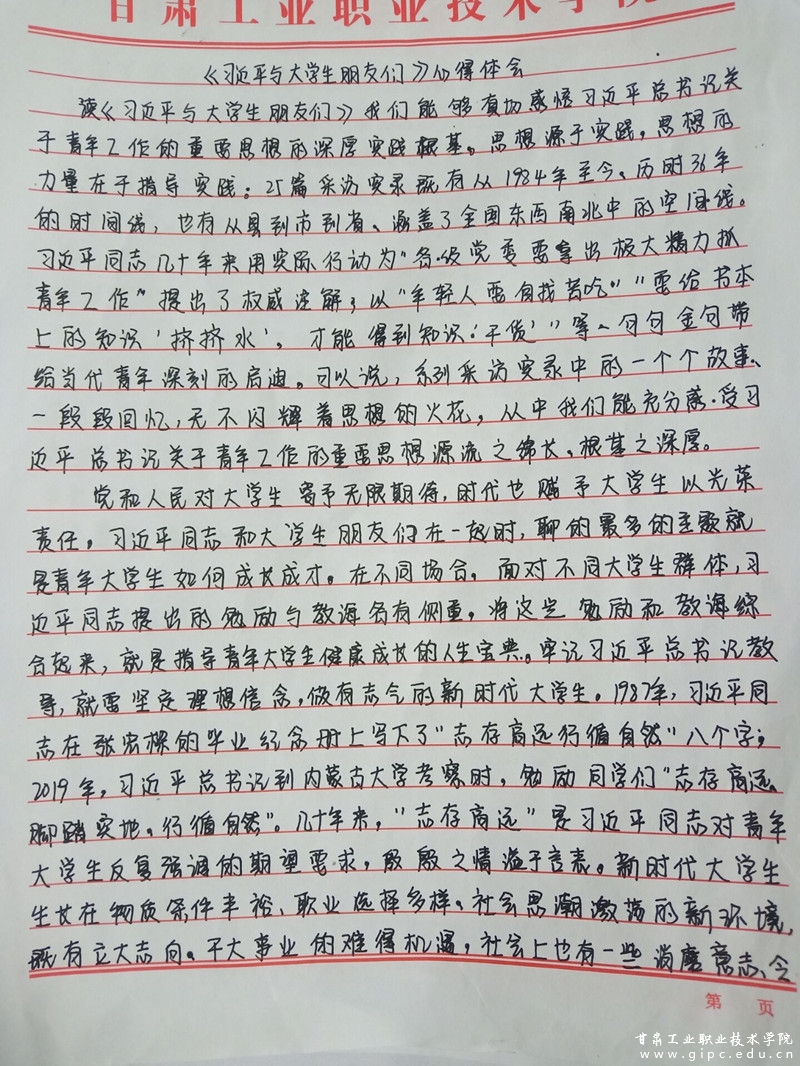 甘肃工业职业技术学院
《习近平与大学生朋友们》心得体会
读《习近平与大学生朋友们》我们能够真切感悟习近平总书记关
于青年工作的重要思想的深厚实践根基。思想源于实践，思想的
力量在于指导实践：25篇采访实录既有从1984年至今、历时36年
的时间线，也有从县到市到省、涵盖了全国东西南北中的空间线。
习近平同志几十年来用实际行动为“各级党委要拿出极大精力抓
青年工作”提出了权威注解；以“年轻人要自找苦吃”“要给书本
上的知识‘挤挤水’，才能得到知识‘干货’”等、句句金句带
给当代青年深刻的启迪。可以说，系列采访实录中的一个个故事、
一段段回忆，无不闪耀着思想的火花，从中我们能充分感受习
近平总书记关于青年工作的重要思想源流之绵长、根基之深厚。
党和人民对大学生寄予无限期待，时代也赋予大学生以光荣
责任。习近平同志和大学生朋友们在一起时，聊的最多的主题就
是青年大学生如何成长成才。在不同场合，面对不同大学生群体，习
近平同志提出的勉励与教诲各有侧重，将这些勉励和教诲综
合起来，就是指导青年大学生健康成长的人生宝典。牢记习近平总书记教
导，就要坚定理想信念，做有志气的新时代大学生。1987年，习近平同
志在张宏樑的毕业纪念册上写下了“志存高远行循自然”八个字；
2019年，习近平总书记到内蒙古大学考察时，勉励同学们“志存高远、
脚踏实地、行循自然”。几十年来，“志存高远”是习近平同志对青年
大学生反复强调的期望要求，殷殷之情溢于言表。新时代大学生
生长在物质条件丰裕、职业选择多样、社会思潮激荡的新环境，
既有立大志向、干大事业的难得机遇，社会上也有一些消磨意志、令
第 页
甘肃工业职业技术学院
www.gipc.edu.cn